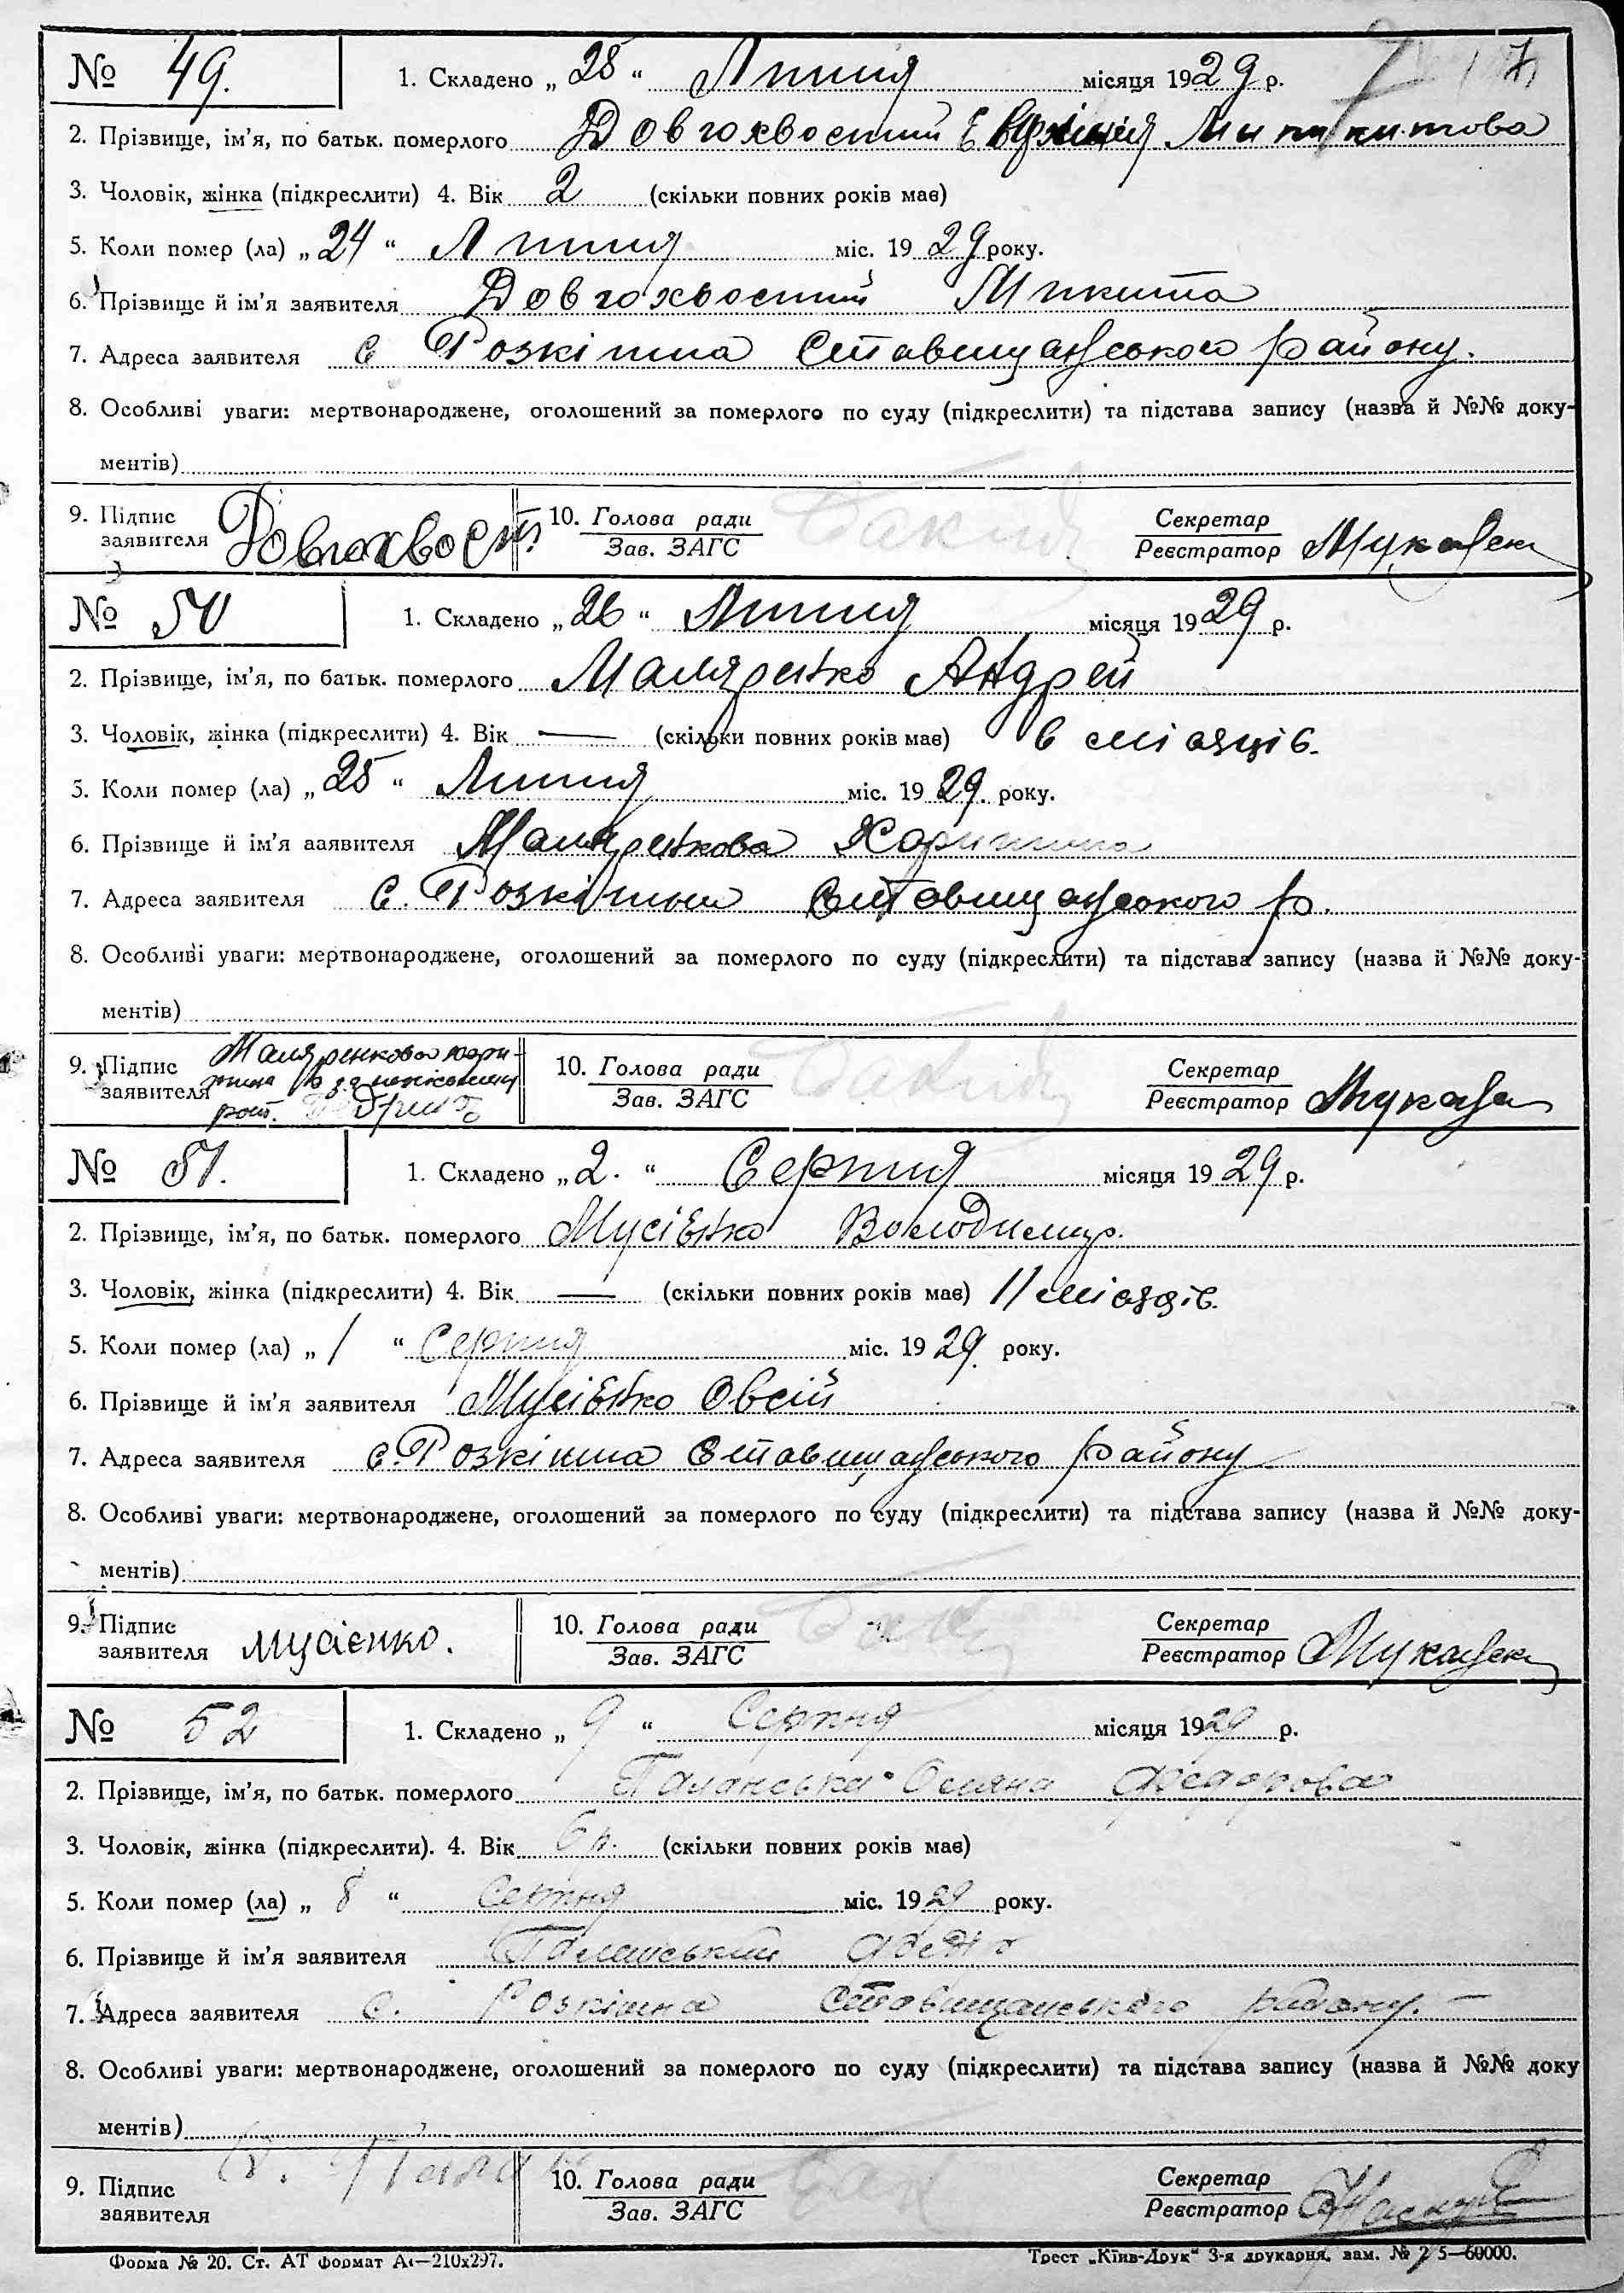 № 49. 1. Складено „25“ Липня місяця 1929 р. 7
2. Прізвище, ім'я, по батьк. померлого Довгохвостий Микитова
3. Чоловік, жінка (підкреслити) 4. Вік 2 (скільки повних років має)
5. Коли помер (ла) „24“ Липня міс. 1929 року.
6. Прізвище й ім'я заявителя Довгохвостий Микита
7. Адреса заявителя с Розкішна Ставищанського району.
8. Особливі уваги: мертвонароджене, оголошений за померлого по суду (підкреслити) та підстава запису (назва й №№ доку-
ментів)
9. Підпис заявителя Довгохвост. 10. Голова ради Зав. ЗАГС Секретар Реєстратор
№ 50 1. Складено „26“ Липня місяця 1929 р.
2. Прізвище, ім'я, по батьк. померлого Маляренко Андрей
3. Чоловік, жінка (підкреслити) 4. Вік — (скільки повних років має) 6 місяців.
5. Коли помер (ла) „25“ Липня міс. 1929. року.
6. Прізвище й ім'я заявителя Маляренкова Харитина
7. Адреса заявителя с. Розкішна Ставищанського р.
8. Особливі уваги: мертвонароджене, оголошений за померлого по суду (підкреслити) та підстава запису (назва й №№ доку-
ментів)
9. Підпис заявителя Маляренкова Хари-
тина
10. Голова ради Зав. ЗАГС Секретар Реєстратор
№ 51. 1. Складено „2.“ Серпня місяця 1929 р.
2. Прізвище, ім'я, по батьк. померлого Мусієнко Володимир.
3. Чоловік, жінка (підкреслити) 4. Вік — (скільки повних років має) 11 місяців.
5. Коли помер (ла) „1“ Серпня міс. 1929. року.
6. Прізвище й ім'я заявителя Мусієнко Овсій
7. Адреса заявителя с. Розкішна Ставищанського району
8. Особливі уваги: мертвонароджене, оголошений за померлого по суду (підкреслити) та підстава запису (назва й №№ доку-
ментів)
9. Підпис заявителя Мусієнко. 10. Голова ради Зав. ЗАГС Секретар Реєстратор
№ 52 1. Складено „9“ Серпня місяця 1929 р.
2. Прізвище, ім'я, по батьк. померлого Федорова
3. Чоловік, жінка (підкреслити). 4. Вік 6 р. (скільки повних років має)
5. Коли помер (ла) „8“ Серпня міс. 1929 року.
6. Прізвище й ім'я заявителя
7. Адреса заявителя с. Розкішна Ставищанського району. —
8. Особливі уваги: мертвонароджене, оголошений за померлого по суду (підкреслити) та підстава запису (назва й №№ доку
ментів)
9. Підпис заявителя 10. Голова ради Зав. ЗАГС Секретар Реєстратор
Форма № 20. Ст. АТ формат А4—210х297. Трест „Київ-Друк“ 3-я друкарня, зам. №